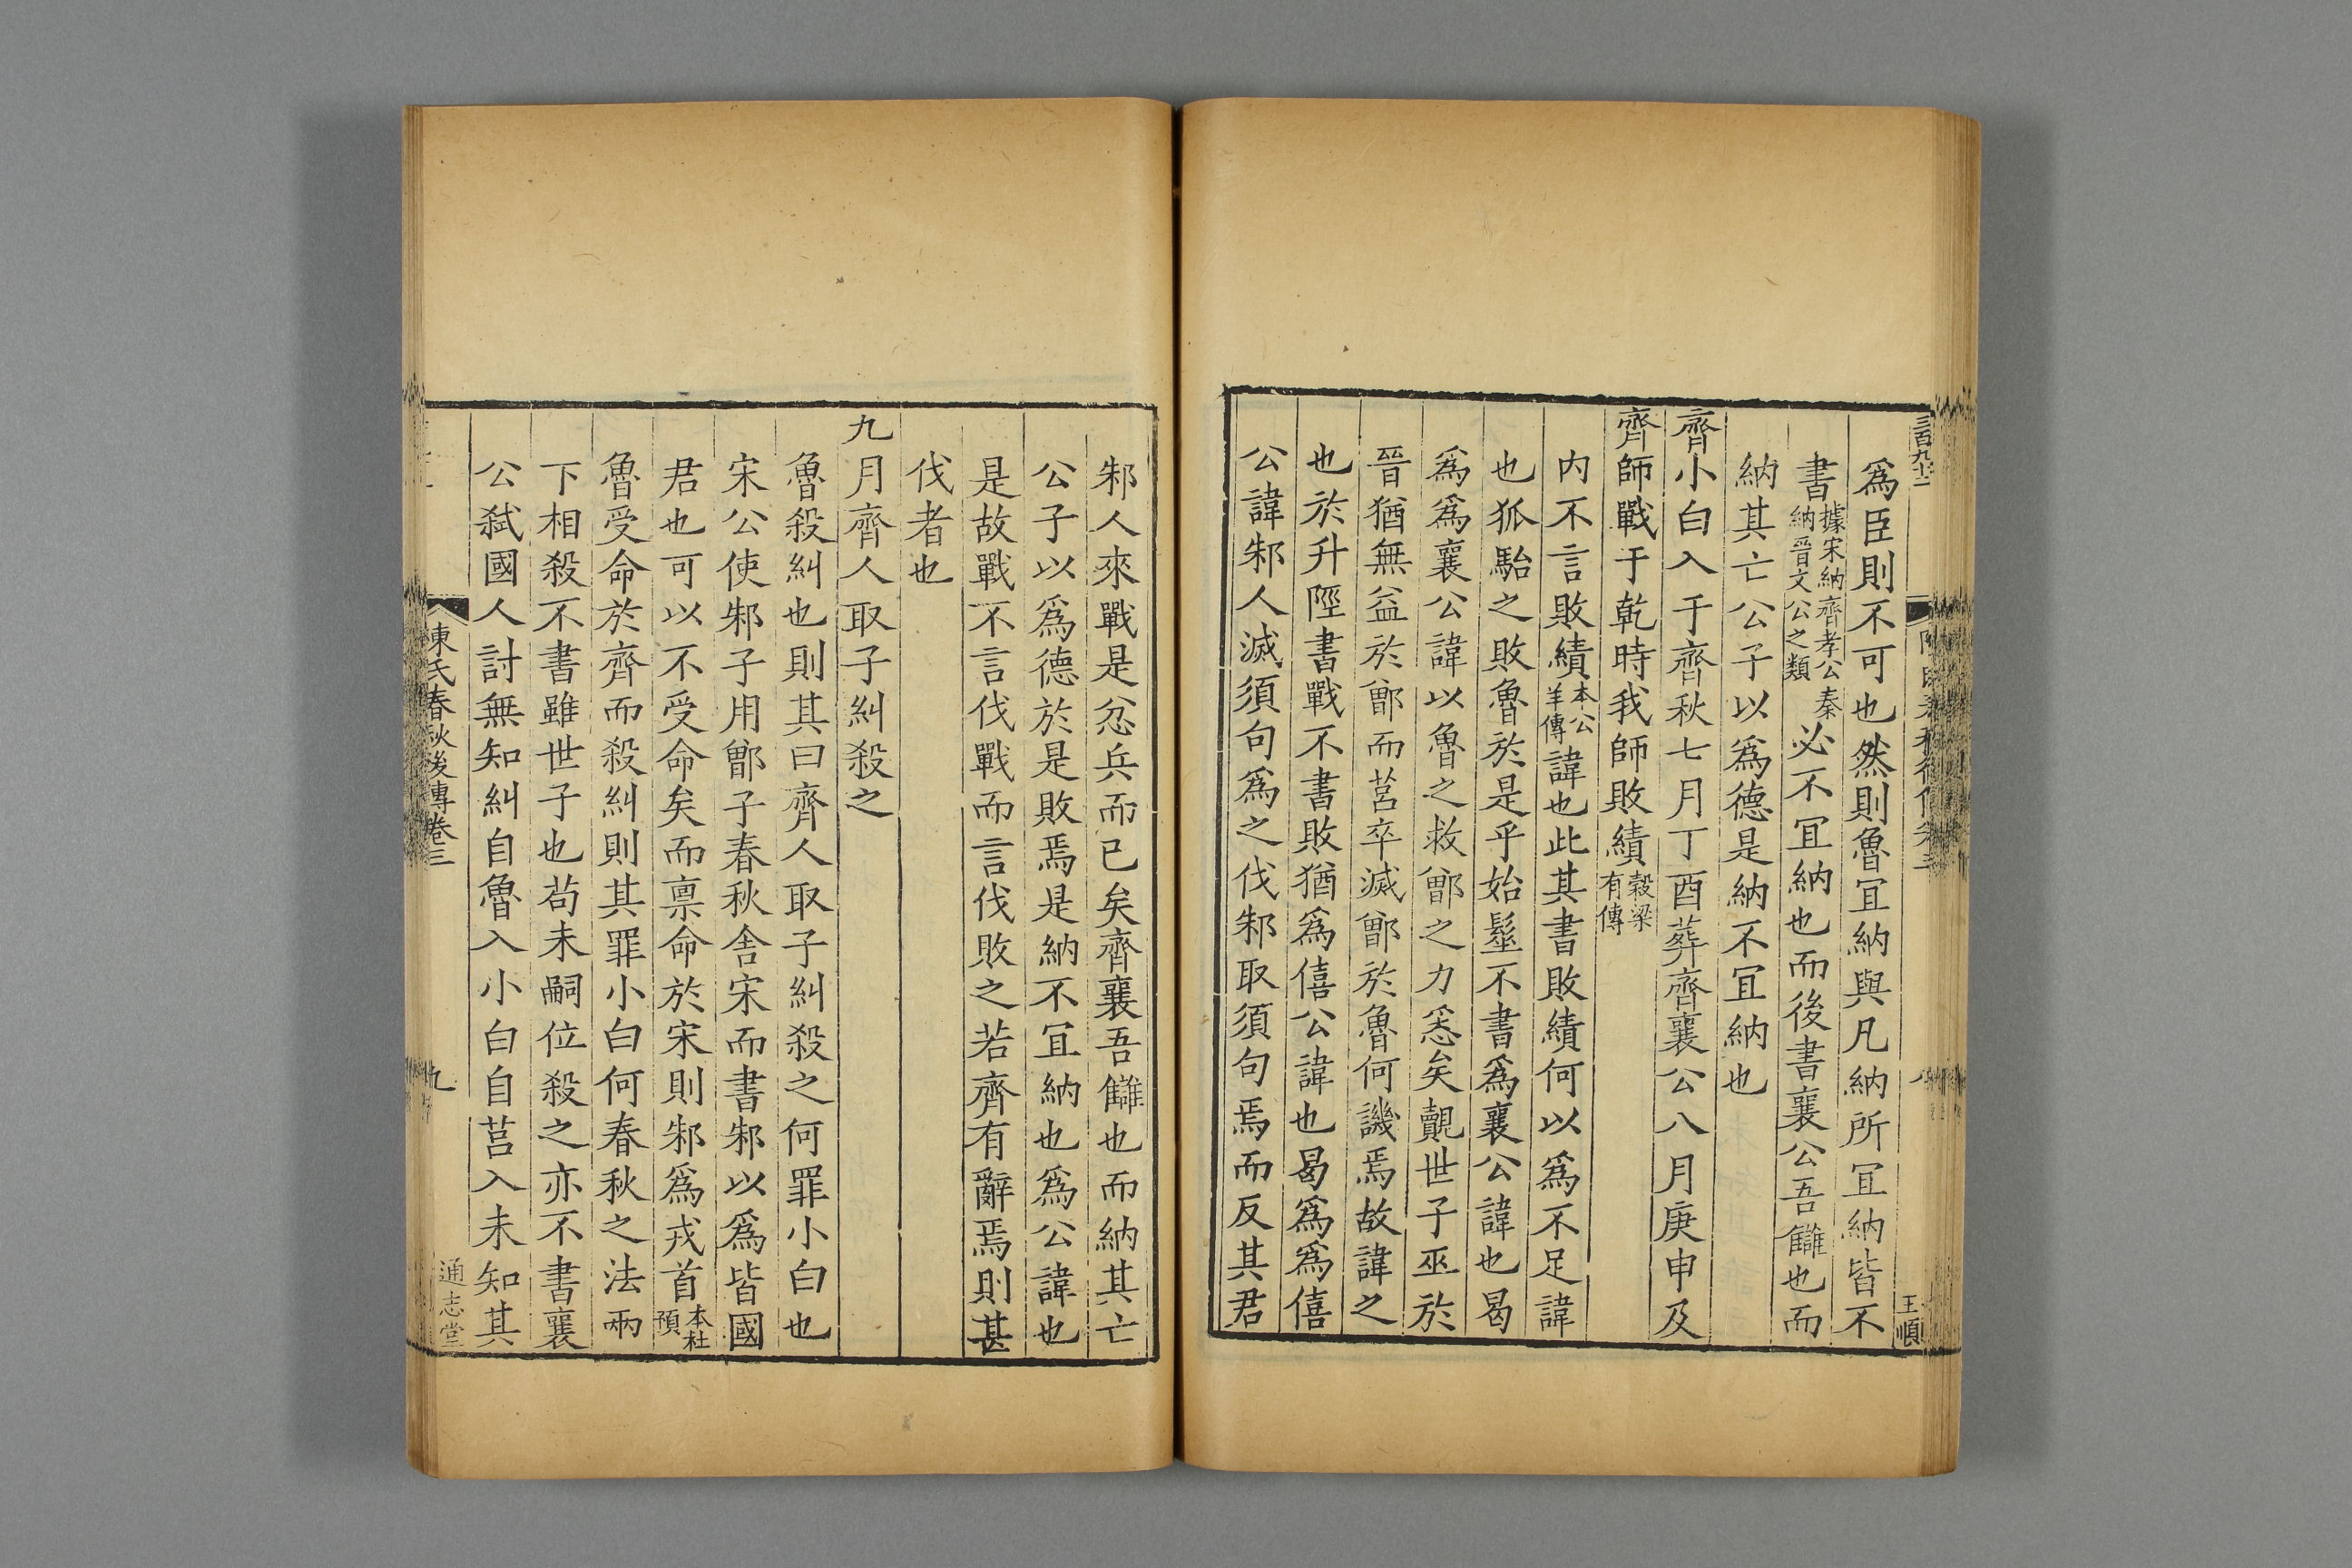 三百九十二
王順
爲臣則不可也然則魯宜納與凡納所宜納皆不
書據宋納齊孝公秦納晉文公之類必不宜納也而後書襄公吾讎也而
納其亡公子以爲德是納不宜納也
齊小白入于齊秋七月丁酉葬齊襄公八月庚申及
齊師戰于乾時我師敗績穀梁有傳
内不言敗績本公羊傳諱也此其書敗績何以爲不足諱
也狐駘之敗魯於是乎始髽不書爲襄公諱也曷
爲爲襄公諱以魯之救鄫之力悉矣覿世子巫於
晉猶無益於鄫而莒卒滅鄫於魯何譏焉故諱之
也於升陘書戰不書敗猶爲僖公諱也曷爲爲僖
公諱邾人滅須句爲之伐邾取須句焉而反其君
邾人來戰是忿兵而已矣齊襄吾讎也而納其亡
公子以爲德於是敗焉是納不宜納也爲公諱也
是故戰不言伐戰而言伐敗之若齊有辭焉則甚
伐者也
九月齊人取子糾殺之
魯殺糾也則其曰齊人取子糾殺之何罪小白也
宋公使邾子用鄫子春秋舍宋而書邾以爲皆國
君也可以不受命矣而禀命於宋則邾爲戎首本杜預
魯受命於齊而殺糾則其罪小白何春秋之法兩
下相殺不書雖世子也苟未嗣位殺之亦不書襄
公弑國人討無知糾自魯入小白自莒入未知其
陳氏春秋後傳卷三
九
通志堂